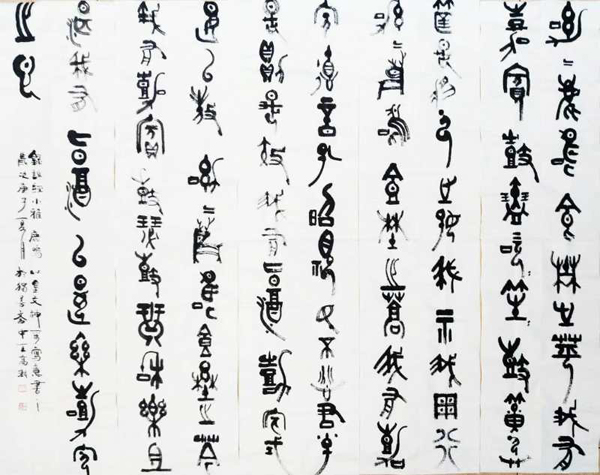 呦〻鹿鳴食野之苹我有
嘉賓鼓瑟吹笙鼓簧承
筐是將人之好我示我周行
呦〻鹿鳴食野之蒿我有嘉
賓德音孔昭視民不恌君子
是則是傚我有旨酒嘉賓式
燕以敖呦〻鹿鳴食野之芩
我有嘉賓鼓瑟鼓琴和樂且
湛我有旨酒以燕樂嘉賓
之心
詩經小雅鹿鳴以金文
庚子夏月